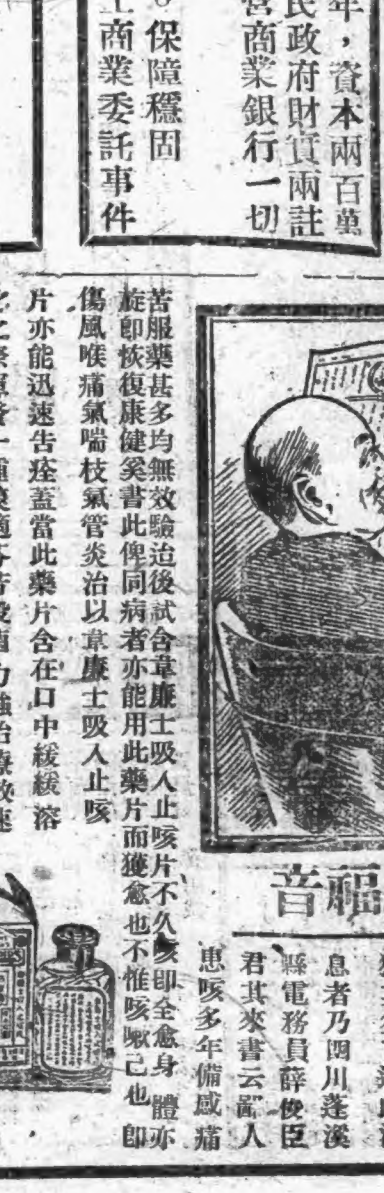 年，資本兩百萬
民政府財實兩註
營商業銀行一切
。保障穩固
工商業委託事件
福音
息者乃四川蓬溪
縣電務員薛俊臣
君其來書云鄙人
患咳多年備感痛
苦服藥甚多均無效驗迨後試含韋廉士吸入止咳片不久咳卽全愈身體亦
旋卽恢復康健奚書此俾同病者亦能用此藥片而獲愈也不惟咳嗽己也卽
傷風喉痛氣喘枝氣管炎治以韋廉士吸入止咳
片亦能迅速告痊蓋當此藥片含在口中緩緩溶